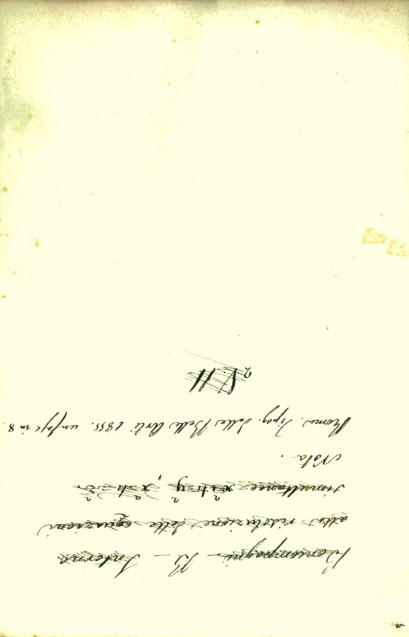 Boncompagni - B. - Intorno
alla risoluzione delle equazioni
simultanee x²+h=y², x²-h=z²
Nota.
Roma. Tipog. delle Belle Arti 1855. un fasc in 8.